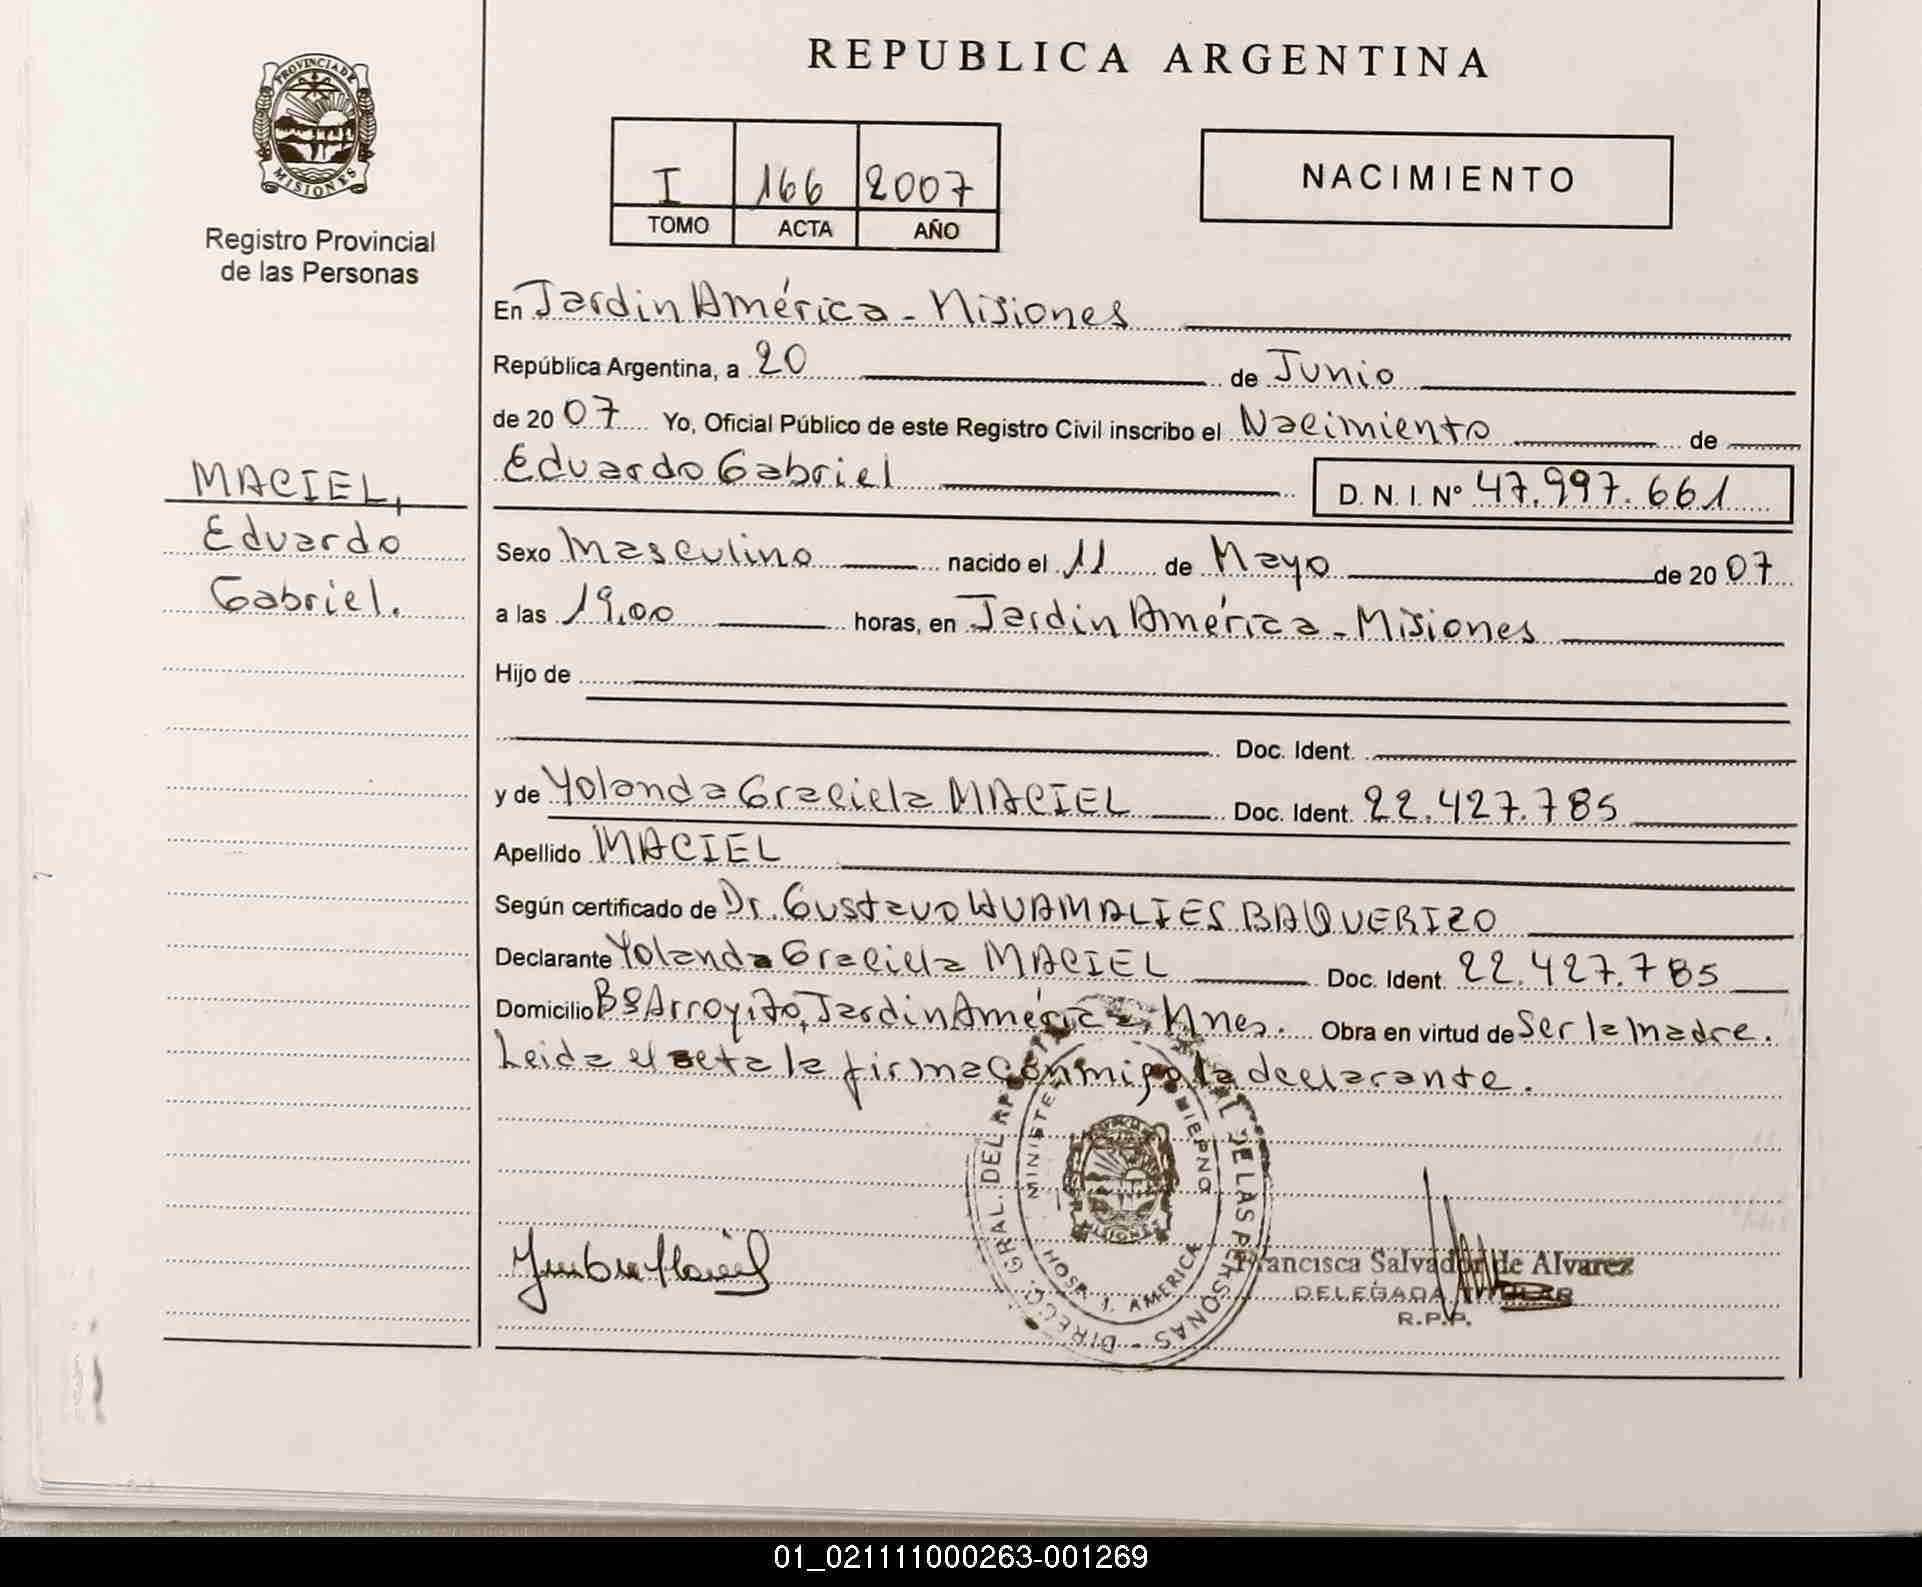 REPUBLICA ARGENTINA
PROVINCIA DE
MISIONES
Registro Provincial
de las Personas
I 166 2007
TOMO ACTA AÑO
NACIMIENTO
MACIEL,
Eduardo
Gabriel.
En Jardin América - Misiones
República Argentina, a 20 de Junio
de 2007 Yo, Oficial Público de este Registro Civil inscribo el Nacimiento de
Eduardo Gabriel D. N. I. Nº 47.997.661
Sexo Masculino nacido el 11 de Mayo de 2007
a las 19,00 horas, en Jardin América - Misiones
Hijo de
Doc. Ident.
y de Yolanda Graciela MACIEL Doc. Ident. 22.427.785
Apellido MACIEL
Según certificado de Dr. Gustavo HUAMALIES BAQUERIZO
Declarante Yolanda Graciela MACIEL Doc. Ident. 22.427.785
Domicilio Bº Arroyito, Jardin América, Mnes. Obra en virtud de Ser la madre.
Leida el acta la firma conmigo la declarante.
DIRECC. GRAL. DEL DE LAS PERSONAS -
HOSP. J. AMERICA
MISIONES
Francisca Salvador de Alvarez
DELEGADA
R.P.P.
01_021111000263-001269